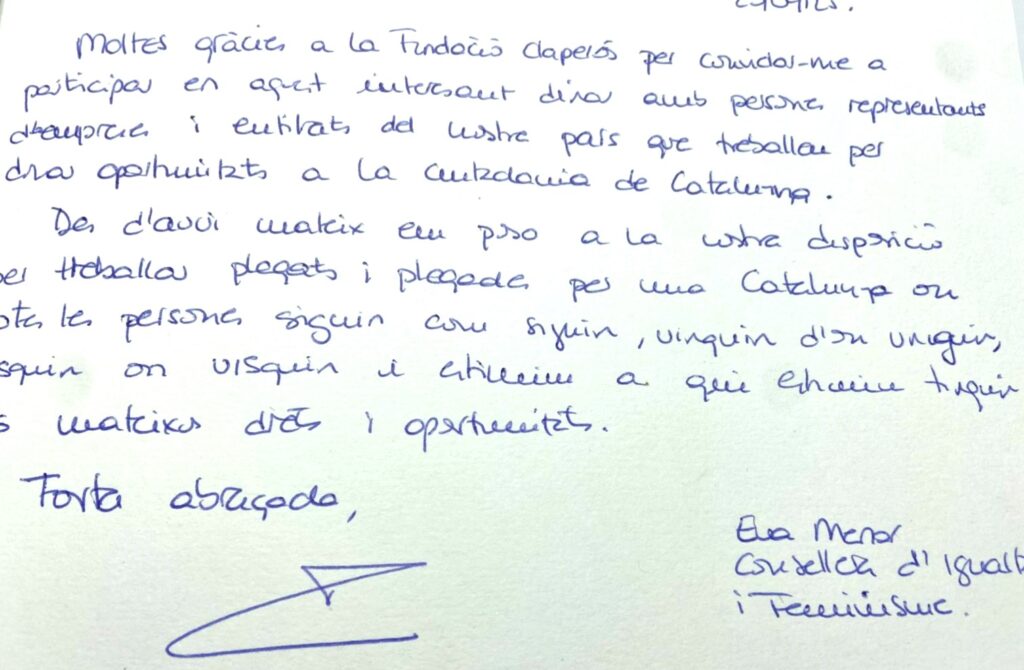 Moltes gràcies a la Fundació Claperós per convidar-me a
participar en aquest interessant dinar amb persones representants
d'empreses i entitats del nostre país que treballau per
dona oportunitats a la ciutadania de Catalunya.
Des d'avui mateix em poso a la vostra disposició
per treballar plegats i plegades per una Catalunya on
totes les persones siguin com siguin, vinguin d'on vinguin,
visquin on visquin i estimin a qui estimin tinguin
els mateixos drets i oportunitats.
Forta abraçada,
Eva Menor
Consellera d'Igualtat
i Feminisme.